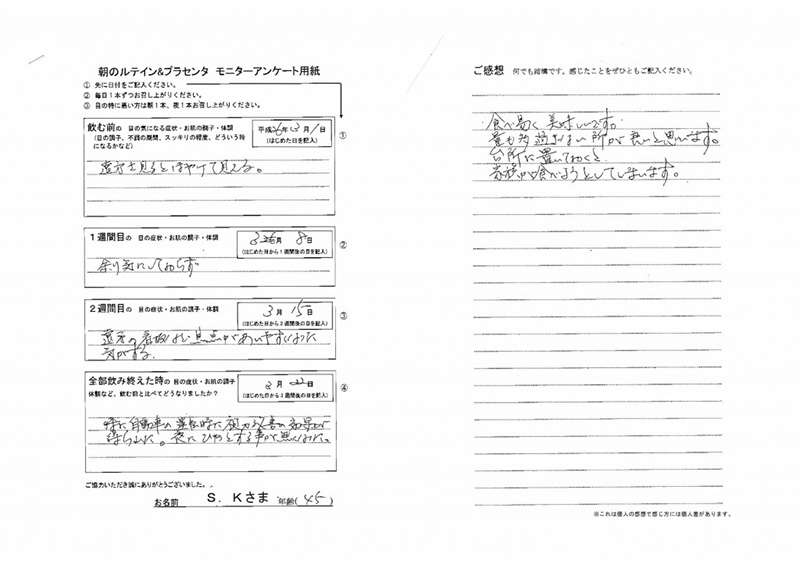 朝のルテイン&プラセンタ モニターアンケート用紙
① 先に日付をご記入ください。
② 毎日1本ずつお召し上がりください。
③ 目の特に悪い方は朝1本、夜1本お召し上がりください。
飲む前の 目の気になる症状・お肌の調子・体調
(目の調子、不調の期間、スッキリの程度、どういう時
になるかなど)
平成26年3月1日
(はじめた日を記入)
①
遠方を見るとぼやけて見える。
1週間目の 目の症状・お肌の調子・体調
月 8日
(はじめた日から1週間後の日を記入)
②
余り気にしておらず
2週間目の 目の症状・お肌の調子・体調
3月 15日
(はじめた日から2週間後の日を記入)
③
遠方の看板など 焦点があいやすくなった
気がする。
全部飲み終えた時の 目の症状・お肌の調子
体調など、飲む前と比べてどうなりましたか?
3月 22日
(はじめた日から3週間後の日を記入)
④
特に自動車の運転時に視力改善の効果が
得られた。
ご協力いただき誠にありがとうございました。
お名前 S.Kさま 年齢(45)
ご感想 何でも結構です。感じたことをぜひともご記入ください。
食べ易く美味しいです。
量も多過ぎない所が良いと思います。
台所に置いておくと
家族が食べようとしてしまいます。
※これは個人の感想で感じ方には個人差があります。